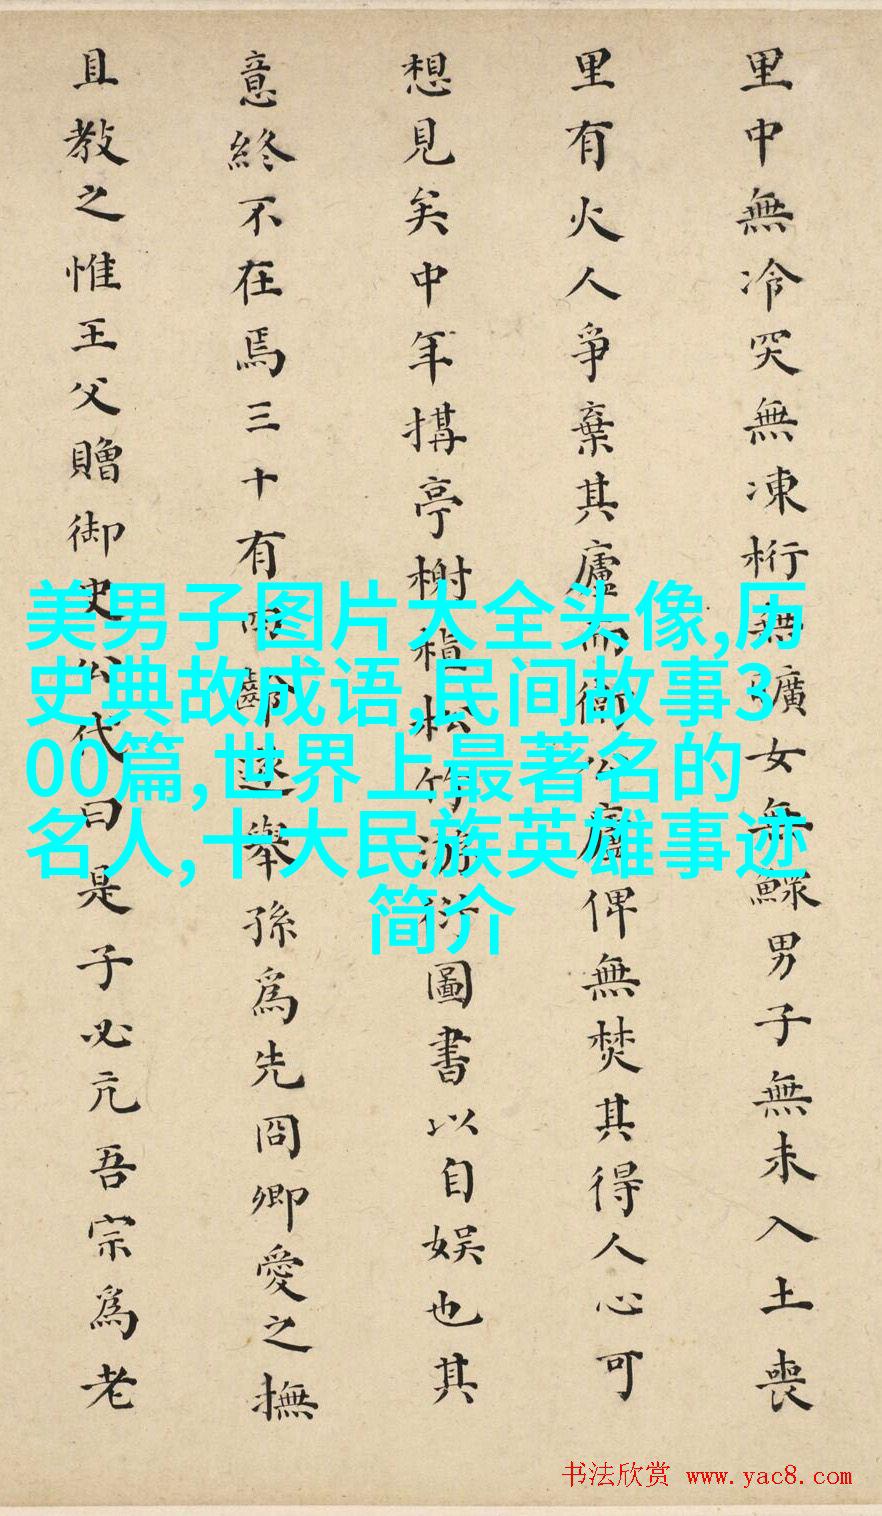 里中無冷突無凍桁無曠女無鰥男子無未入土喪
里有火人爭棄其廬而衛公廬俾無焚其得人心可
想見矣中年搆亭榭植松竹游衍圖書以自娱也其
意終不在焉三十有齡遂舉孫爲先冏卿愛之撫
且教之惟王父贈御史公代曰是子必亢吾宗爲老
美男子图片大全头像,历
史典故成语,民间故事3
00篇,世界上最著名的
名人,十大民族英雄事迹
简介
书法欣赏 www.yac8.com